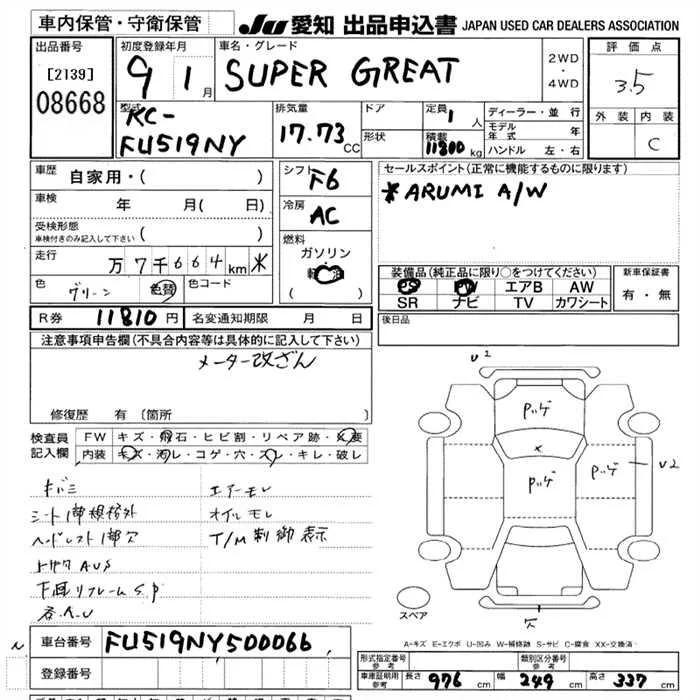 車内保管・守衛保管
JU 愛知 出品申込書 JAPAN USED CAR DEALERS ASSOCIATION
出品番号
[2139]
08668
初度登録年月
9 1月
車名・グレード
SUPER GREAT
2WD
・
4WD
評価点
3.5
外装 内装
C
型式
KC-
FU519NY
排気量
17.73 CC
ドア
形状
定員 1 人
積載 11800 kg
ディーラー・並行
モデル年式 年
ハンドル 左・右
車歴
自家用・( )
車検
年 月( 日)
受検形態
車検付きのみ記入して下さい ( )
走行
万 7 千 6 6 4 km
色 グリーン 色替 色コード
シフト F6
冷房 AC
燃料
ガソリン
( )
セールスポイント(正常に機能するものに限ります)
*ARUMI A/W
装備品(純正品に限り○をつけて下さい)
PS PW エアB AW
SR ナビ TV カワシート
新車保証書
有・無
R券 11810 円 名変通知期限 月 日
後日品
注意事項申告欄(不具合内容等は具体的に記入して下さい)
メーター改ざん
修復歴 有 (箇所 )
検査員記入欄
FW キズ・飛石・ヒビ割・リペア跡・X要
内装 キズ・汚レ・コゲ・穴・スレ・キレ・破レ
キバミ
シート1部規格外
ヘッドレスト1部欠
下廻リフレームS,P
各A,U
エアーモレ
オイルモレ
T/M 制御表示
U2
Pッゲ
X
Pッゲ
Pッゲ
U2
スペア
A-キズ E-エクボ U-凹み W-補修跡 S-サビ C-腐食 XX-交換済
車台番号 FU519NY500066
登録番号
形式指定番号 参考
類別区分番号 参考
車庫証明用 参考 長さ 976 cm 幅 249 cm 高さ 337 cm